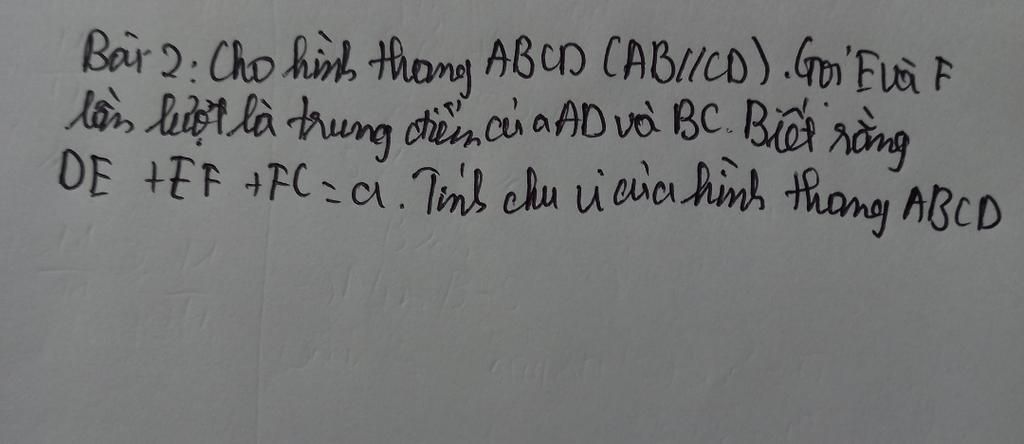 Bài 2: Cho hình thang ABCD (AB//CD). Gọi E và F
lần lượt là trung điểm của AD và BC. Biết rằng
DE + EF + FC = a. Tính chu vi của hình thang ABCD